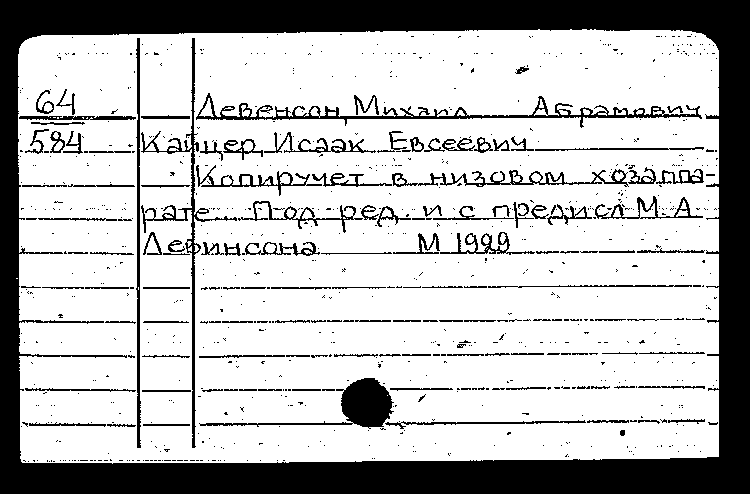 64 Левенсон, Михаил Абрамович
584 Кайцер, Исаак Евсеевич
Копиручет в низовом хозаппа-
рате. Под ред. и с предисл М. А.
Левинсона М 1929